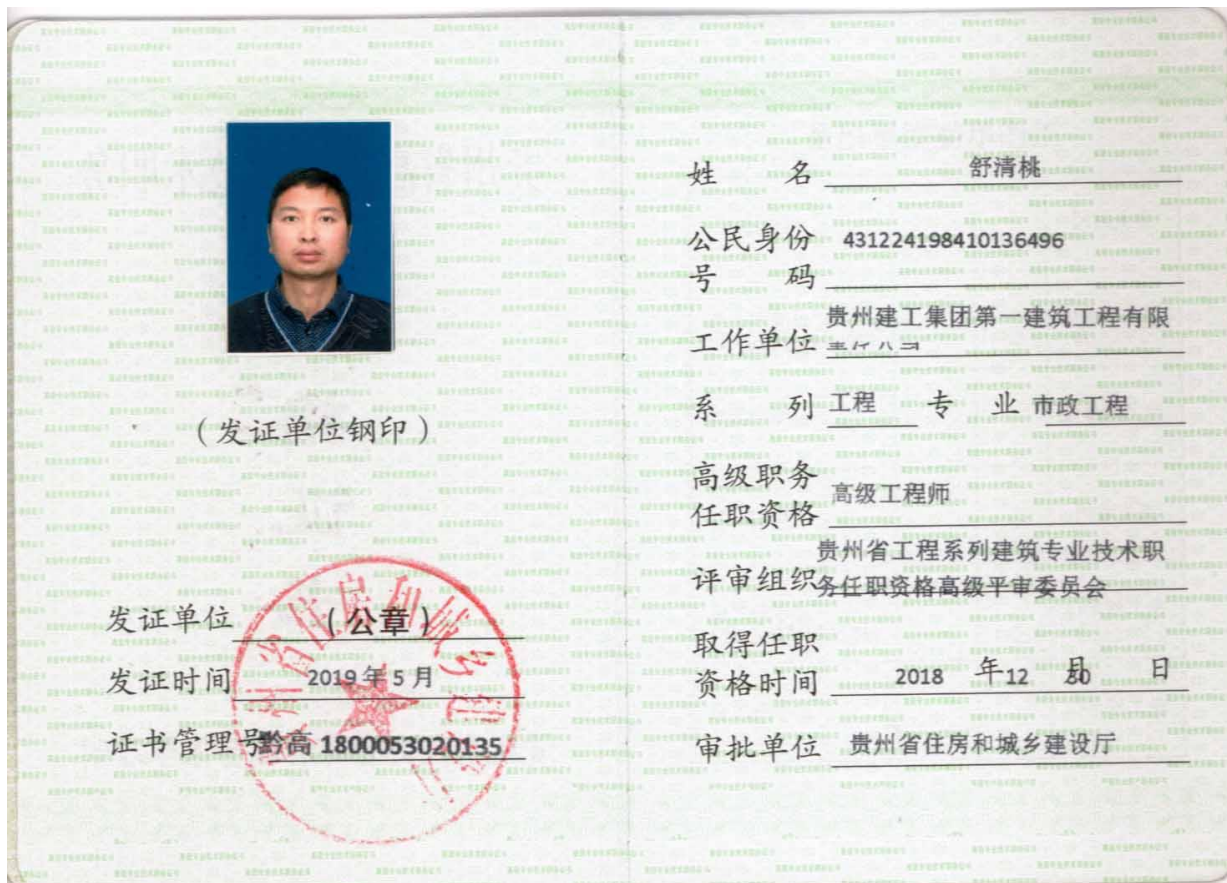 (发证单位钢印)
发证单位 (公章)
发证时间 2019 年 5 月
证书管理号黔高 1800053020135
姓 名 舒清桃
公民身份 431224198410136496
号 码
贵州建工集团第一建筑工程有限
工作单位 责任公司
系 列 工程 专 业 市政工程
高级职务
任职资格 高级工程师
贵州省工程系列建筑专业技术职
评审组织务任职资格高级平审委员会
取得任职
资格时间 2018 年 12 月 30 日
审批单位 贵州省住房和城乡建设厅